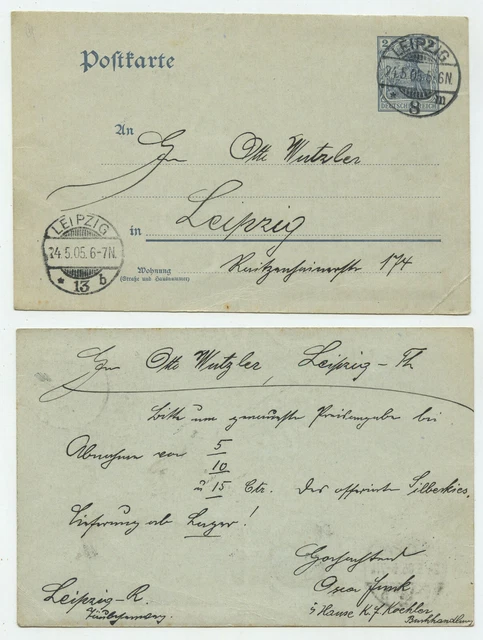 Postkarte
2
DEUTSCHES REICH
LEIPZIG
24.5.05. 6-7N.
* 8 m
An
Otto Wutzler
in Leipzig
LEIPZIG
24.5.05. 6-7N.
* 13 b
Wohnung
(Straße und Hausnummer)
174
Otto Wutzler, Leipzig - Th
Bitte um genaueste Preisangabe bei
Abnahme von 5
10
u 15 Ctr. des offerirten Silberkies.
Lieferung ab Lager!
Hochachtend
Leipzig-R.
Oscar Funk
i/ Hause K. F. Koehler
Buchhandlung